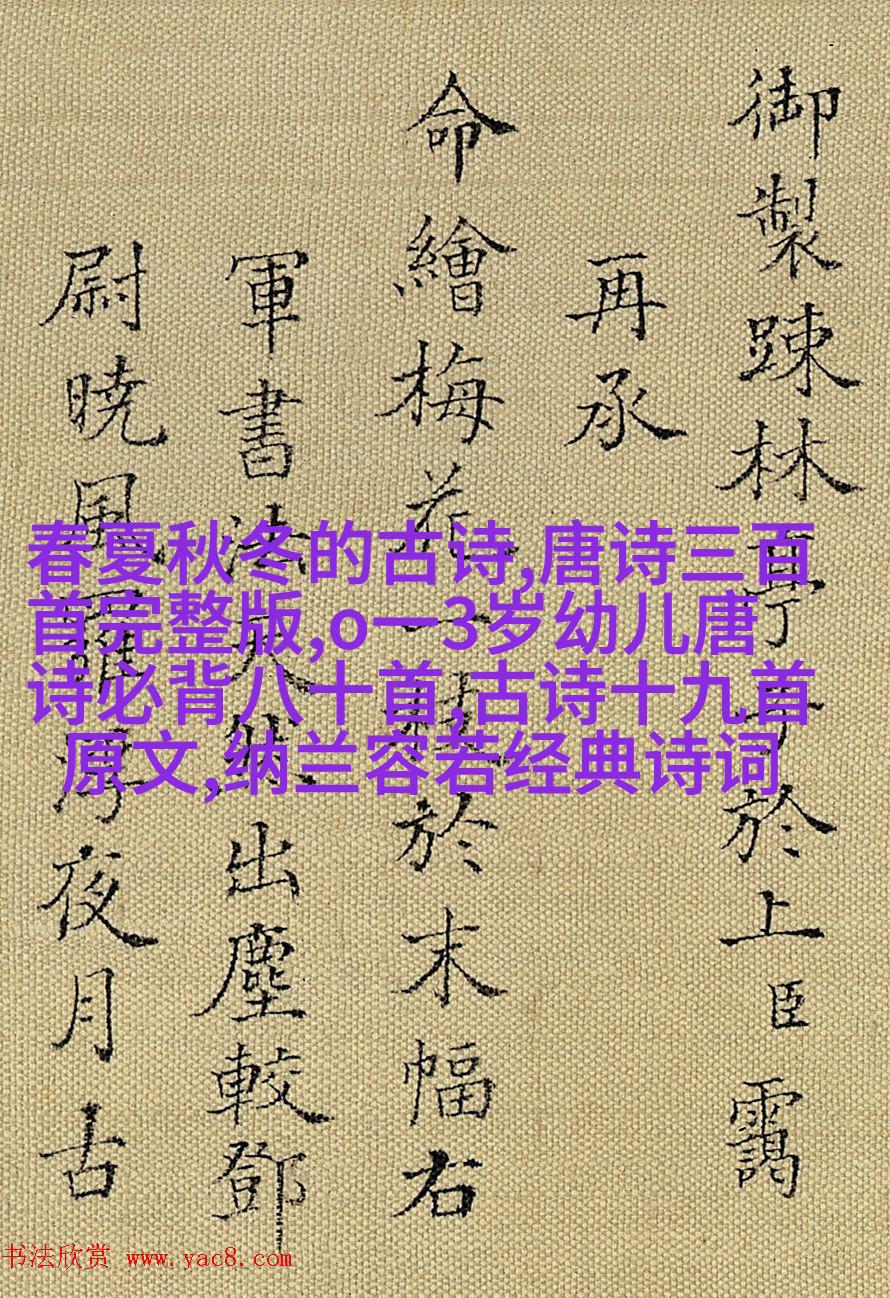 御製踈林亭子於上臣靄
再承
命繪梅花一枝於末幅右
軍書法天然出塵較鄧
尉暁風夜月古
春夏秋冬的古诗,唐诗三百
首完整版,o一3岁幼儿唐
诗必背八十首,古诗十九首
原文,纳兰容若经典诗词
书法欣赏 www.yac8.com